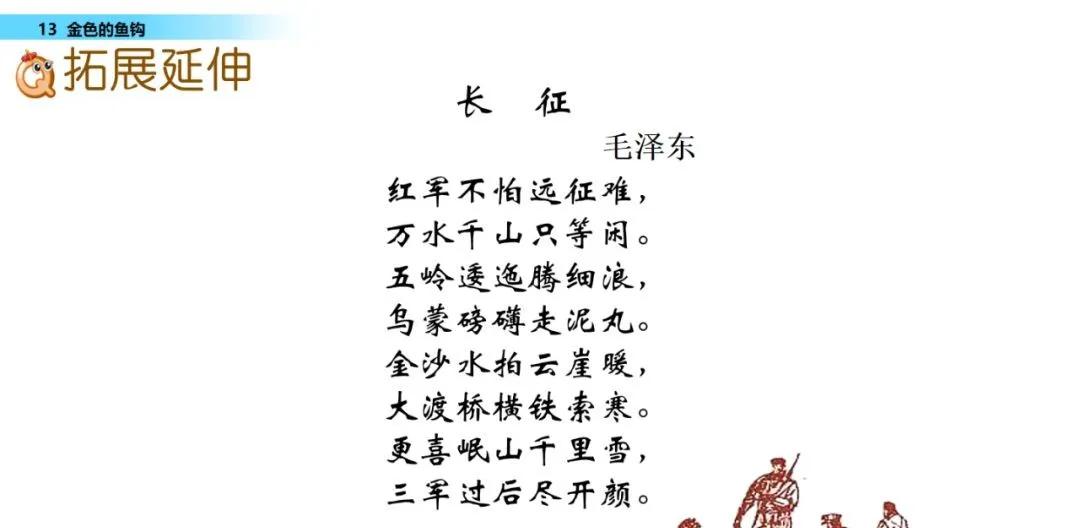 13 金色的鱼钩
拓展延伸
长 征
毛泽东
红军不怕远征难，
万水千山只等闲。
五岭逶迤腾细浪，
乌蒙磅礴走泥丸。
金沙水拍云崖暖，
大渡桥横铁索寒。
更喜岷山千里雪，
三军过后尽开颜。